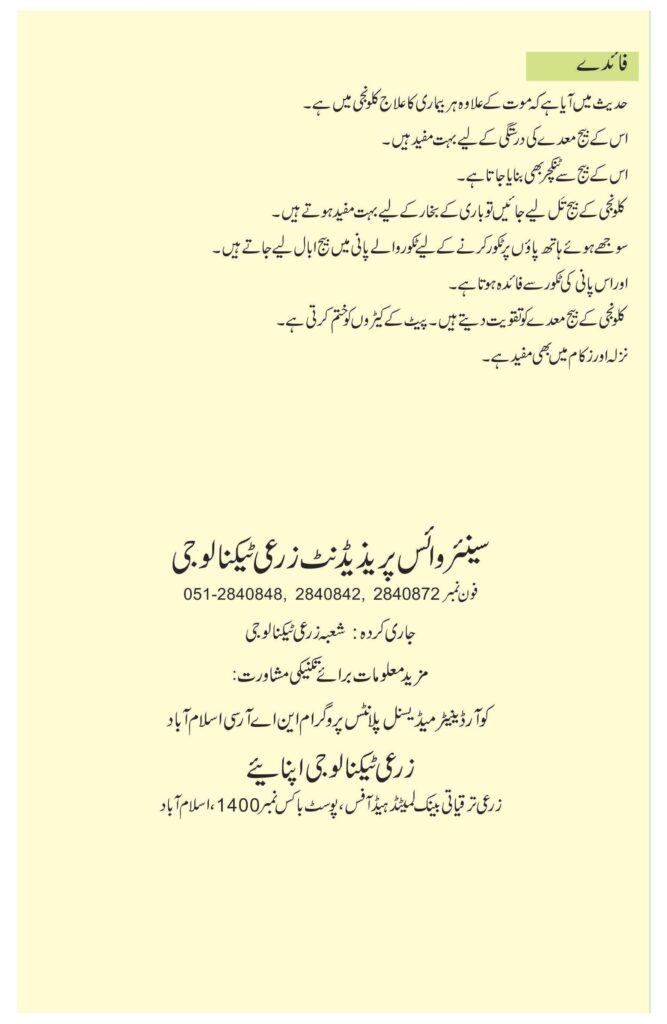 فائدے
حدیث میں آیا ہے کہ موت کے علاوہ ہر بیماری کا علاج کلونجی میں ہے۔
اس کے بیج معدے کی درستگی کے لیے بہت مفید ہیں۔
اس کے بیج سے ٹنکچر بھی بنایا جاتا ہے۔
کلونجی کے بیج تَل لیے جائیں تو باری کے بخار کے لیے بہت مفید ہوتے ہیں۔
سوجھے ہوئے ہاتھ پاؤں پر ٹکور کرنے کے لیے ٹکور والے پانی میں بیج ابال لیے جاتے ہیں۔
اور اس پانی کی ٹکور سے فائدہ ہوتا ہے۔
کلونجی کے بیج معدے کو تقویت دیتے ہیں۔ پیٹ کے کیڑوں کو ختم کرتی ہے۔
نزلہ اور زکام میں بھی مفید ہے۔
سینئر وائس پریذیڈنٹ زرعی ٹیکنالوجی
فون نمبر 051-2840848, 2840842, 2840872
جاری کردہ : شعبہ زرعی ٹیکنالوجی
مزید معلومات برائے تکنیکی مشاورت:
کوآرڈینیٹر میڈیسنل پلانٹس پروگرام این اے آر سی اسلام آباد
زرعی ٹیکنالوجی اپنائیے
زرعی ترقیاتی بینک لمیٹڈ ہیڈ آفس، پوسٹ باکس نمبر 1400، اسلام آباد